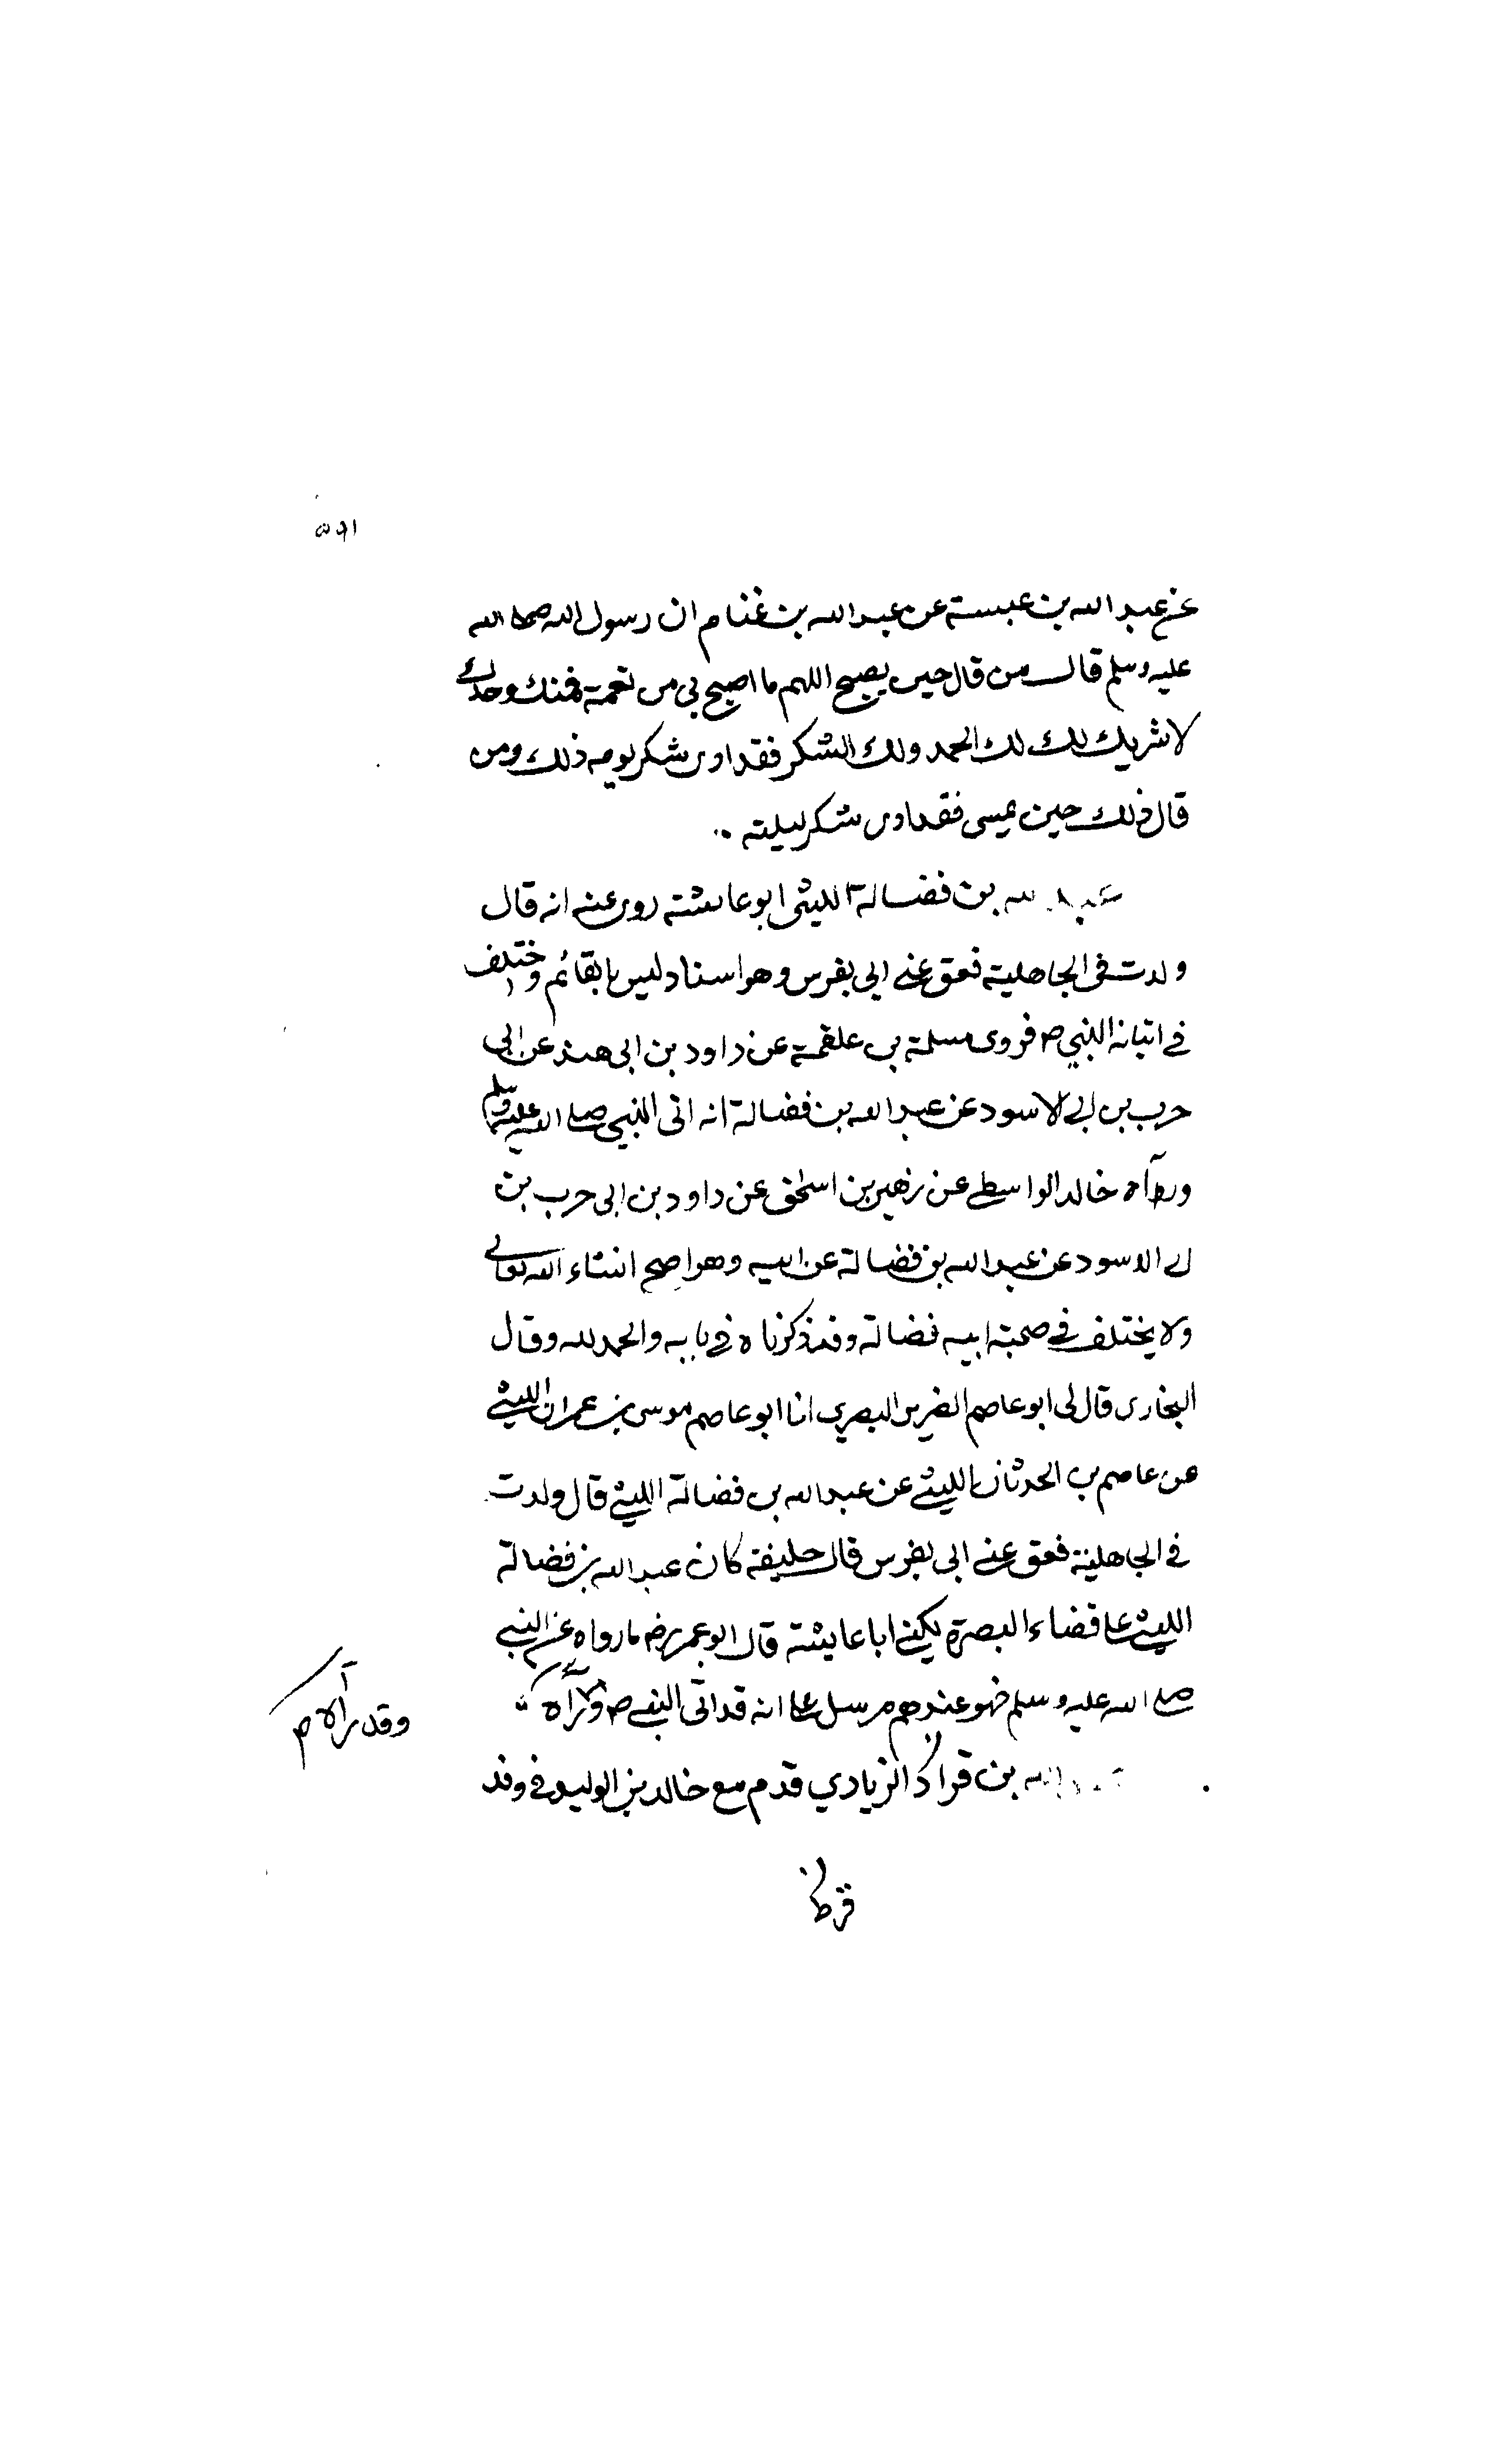 عن عبد الله بن عبسة عن عبد الله بن غنام ان رسول الله صلى الله
عليه وسلم قال من قال حين يصبح اللهم ما اصبح بي من نعمة فمنك وحدك
لا شريك لك لك الحمد ولك الشكر فقد ادى شكر يومه ذلك ومن
قال ذلك حين يمسى فقد ادى شكر ليلته
عبد الله بن فضالة الليثى ابو عائشة روى عنه انه قال
ولدت فى الجاهلية فعق عنى ابى بفرس وهو اسناد ليس بالقائم واختلف
فى اتيانه النبي ص فروى مسلمة بن علقمة عن داود بن ابى هند عن ابى
حرب بن ابى الاسود عن عبد الله بن فضالة انه اتى النبي صلى الله عليه وسلم
ورواه خالد الواسطى عن زهير بن اسحق عن داود بن ابى حرب بن
ابى الاسود عن عبد الله بن فضالة عن ابيه وهو اصح انشاء الله تعالى
ولا يختلف فى صحبة ابيه فضالة وقد ذكرناه فى بابه والحمد لله وقال
البخارى قال لى ابو عاصم الضرير البصري انا ابو عاصم موسى بن عمران الليثى
عن عاصم بن الحدثان الليثى عن عبد الله بن فضالة الليثى قال ولدت
فى الجاهلية فعق عنى ابى بفرس قال خليفة كان عبد الله بن فضالة
الليثى على قضاء البصرة يكنى ابا عايشة قال ابو عمر رض ما رواه عن النبى
صلى الله عليه وسلم فهو عندهم مرسل على انه قد اتى النبى ص ورآه
وقد رآه م
الله بن قراد الزيادي قدم مع خالد بن الوليد فى وفد